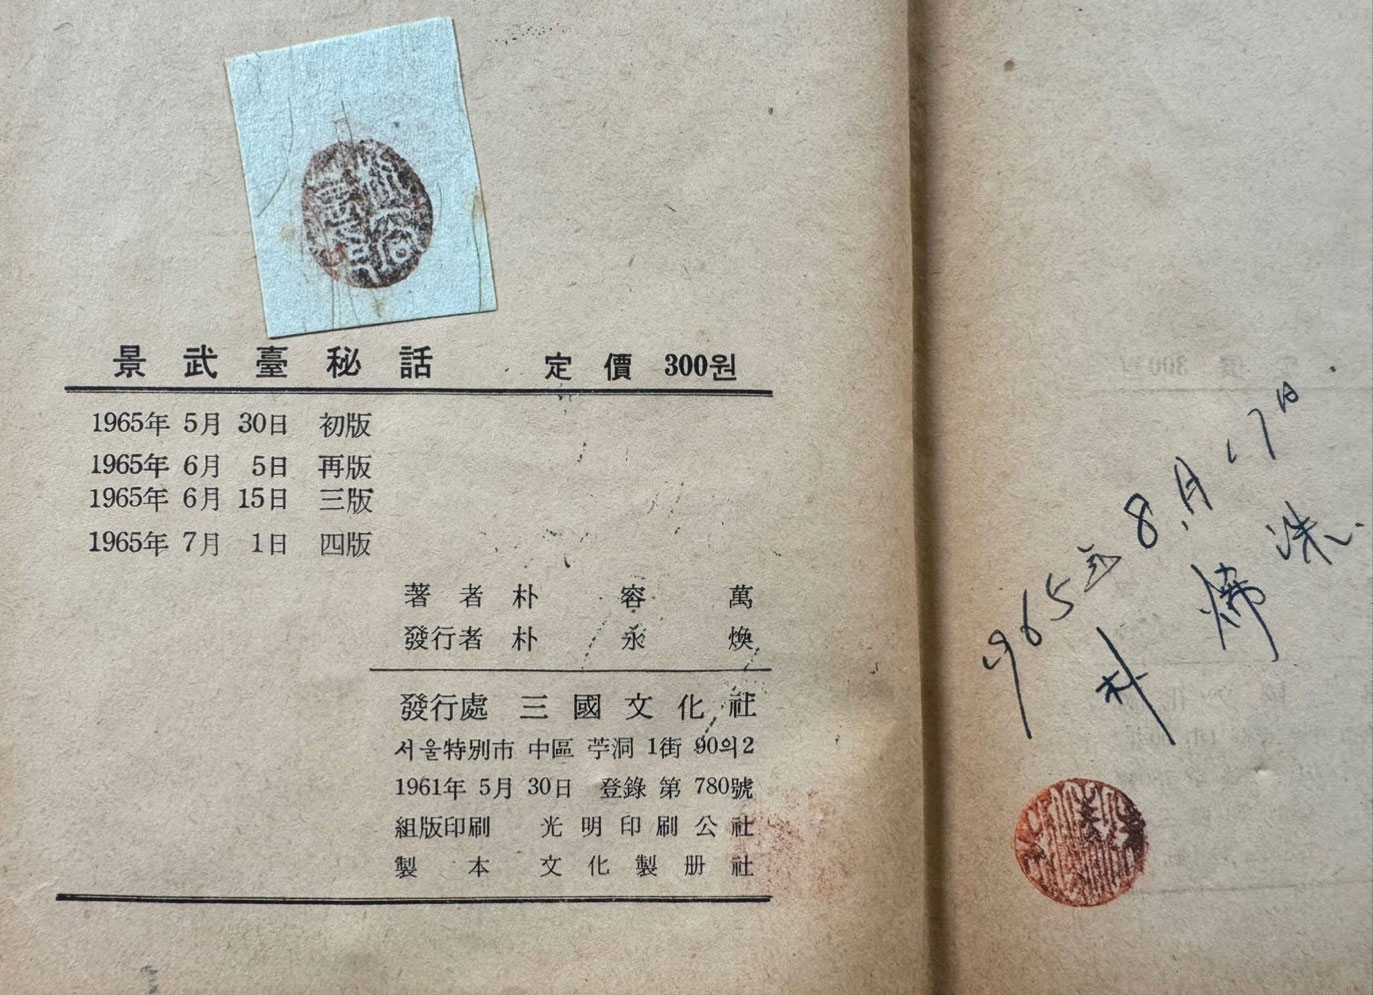 景武臺秘話 定價 300원
1965年 5月 30日 初版
1965年 6月 5日 再版
1965年 6月 15日 三版
1965年 7月 1日 四版
著者 朴容萬
發行者 朴永煥
發行處 三國文化社
서울特別市 中區 苧洞 1街 90의2
1961年 5月 30日 登錄 第 780號
組版印刷 光明印刷公社
製本 文化製册社
1965年 8月 17日.
朴 洙